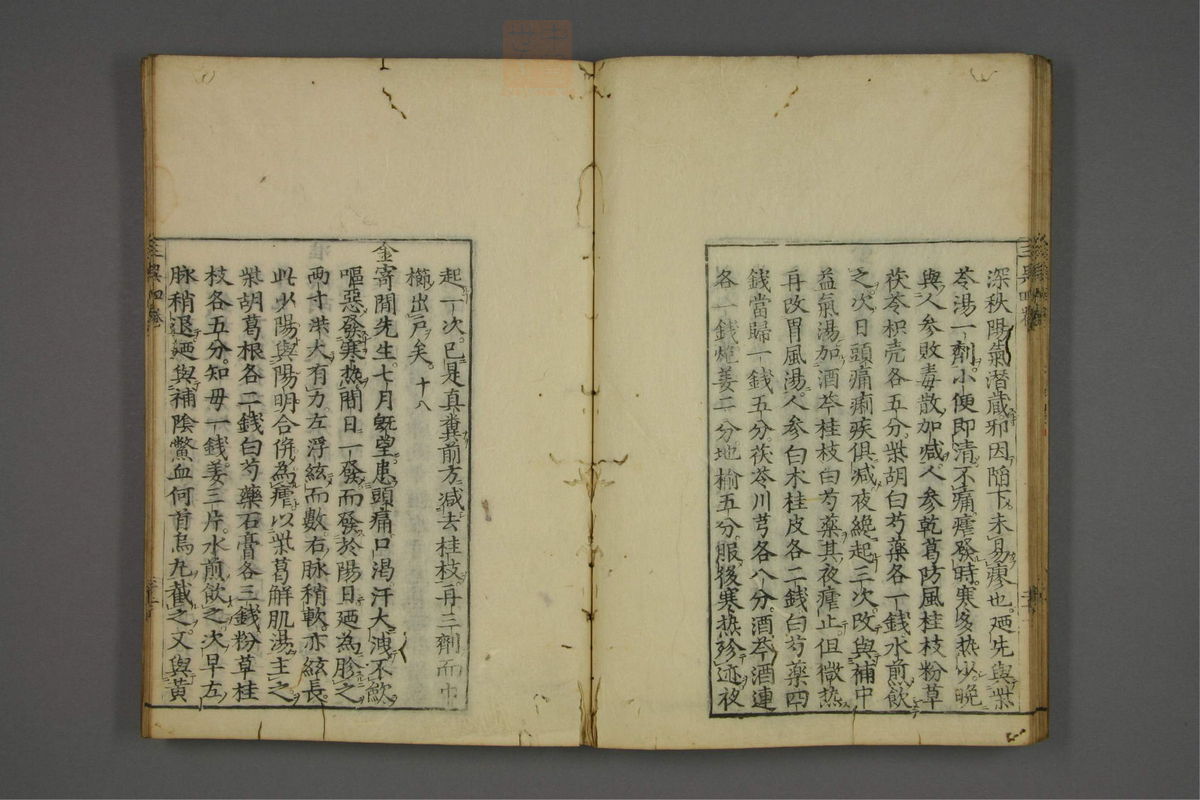 深秋陽氣潜蔵邪因陥下未易瘳也廼先與柴
苓湯一劑小便即清不痛瘧發時寒多熱少晩
與人参敗毒散加减人参乾葛防風桂枝粉草
茯苓枳壳各五分柴胡白芍藥各一錢水煎飲
之次日頭痛痢疾俱减夜纔起三次改與補中
益氣湯加酒芩桂枝白芍藥其夜瘧止但微熱
再改胃風湯人参白朮桂皮各二錢白芍藥四
錢當歸一錢五分茯苓川芎各八分酒芩酒連
各一錢煨姜二分地榆五分服後寒熱殄迹夜
起一次已是真糞前方减去桂枝再三劑而巾
櫛出戸矣十八
金寄閒先生七月旣望患頭痛口渴汗大洩不飲
嘔惡發寒熱間日一發而發於陽日廼為胗之
兩寸洪大有力左浮絃而數右脉稍軟亦絃長
此少陽與陽明合併為瘧以柴葛解肌湯主之
柴胡葛根各二錢白芍藥石膏各三錢粉草桂
枝各五分知毋一錢姜三片水煎飲之次早左
脉稍退廼與補陰鱉血何首烏丸截之又與黄